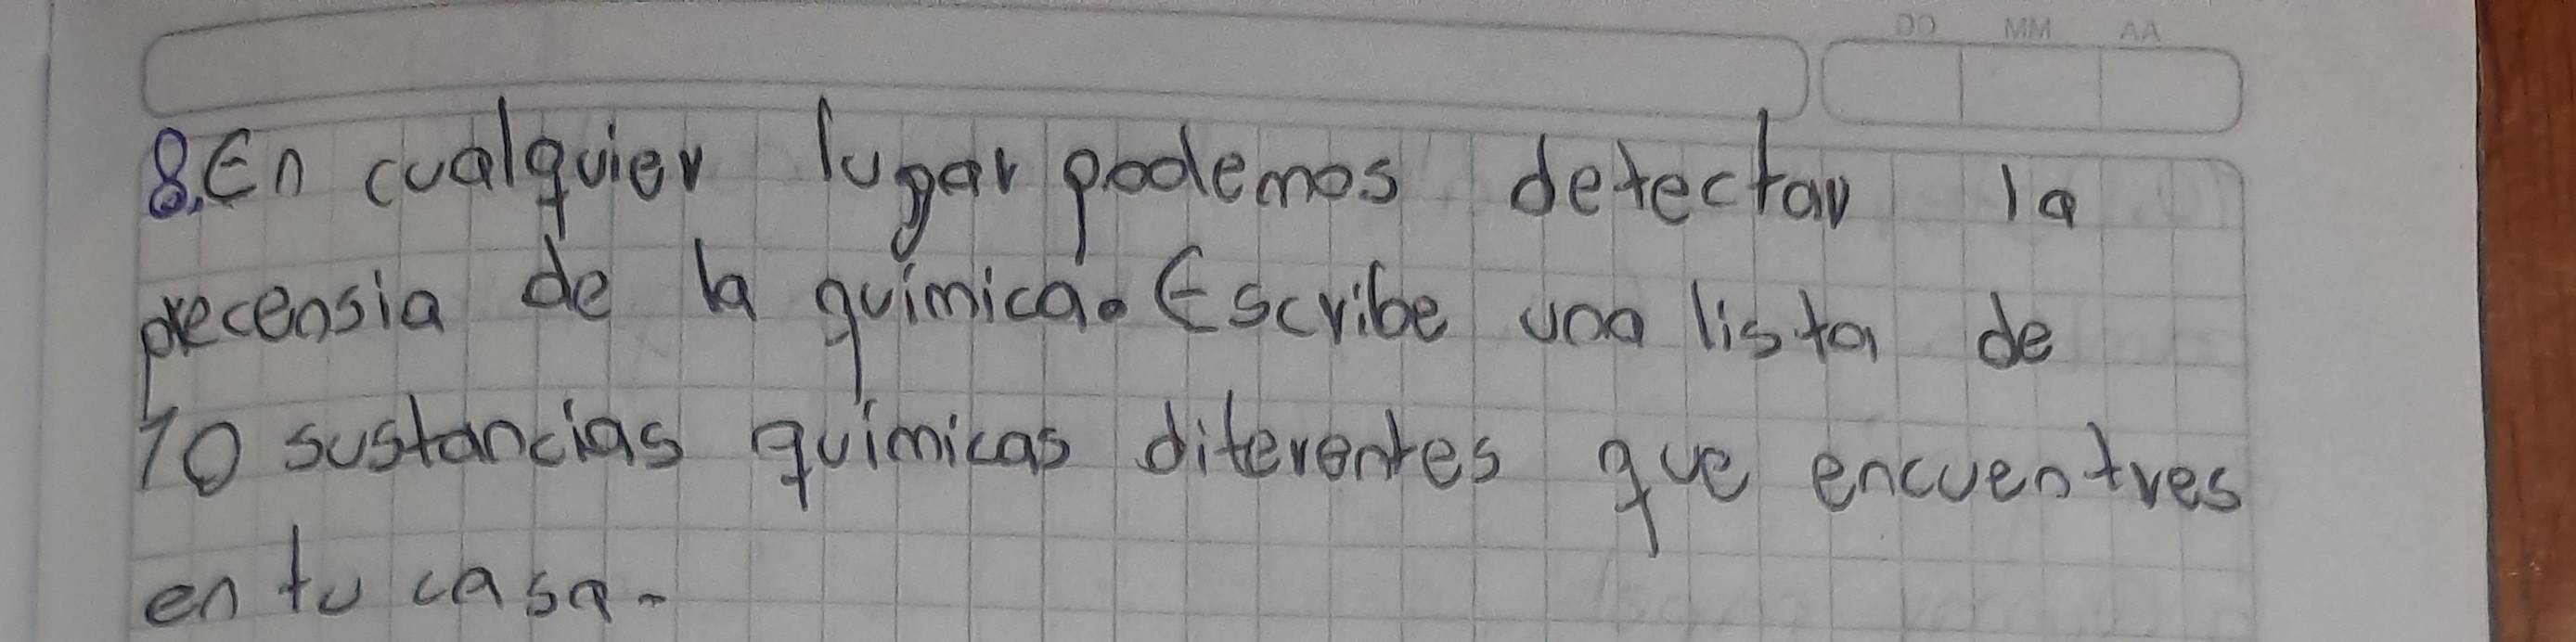 DD MM AA
8. En cualquier lugar podemos detectar la
precensia de la química. Escribe una lista de
10 sustancias químicas diferentes que encuentres
en tu casa.